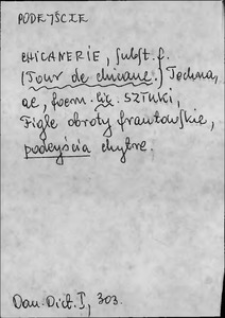 PODEJŚCIE
CHICANERIE, subst. f.
(Tour de chicane.) Techna,
ae, foem. Lic. SZTUKI,
Figle obroty frantowskie,
podeyścia chytre.
Dan. Dict. I, 303.